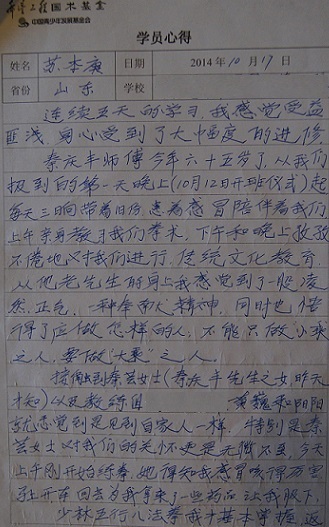 国术基金
中国青少年发展基金会
学员心得
姓名 苏本庚 日期 2014年10月19日
省份 山东 学校
连续五天的学习,我感觉受益
匪浅,身心受到了大幅度的进修
秦庆丰师傅今年六十五岁了,从我们
报到的第一天晚上(10月12日开班仪式)起
每天三日带着旧伤,患着感冒陪伴着我们
上午亲身教了我们拳术,下午和晚上孜孜
不倦地对我们进行传统文化教育,
从他老先生的身上我感觉到了一股凌
然正色,一种拳击人精神,同时也懂
得了应做怎样的人,不能只做“小我
之人,要做“大乘”之人。
接触到秦芸女士(秦庆丰先生之女,昨天
才知)以及教练组 黄巍和阳阳
就感觉到是见到自家人一样,特别是秦
芸女士对我们的关怀更是无微不至,今天
上午刚开始练拳,她得知我感冒咳得厉害
马上开车回去为我拿来了一些药品让我服下。
少林五行八法拳我十基本掌握,返